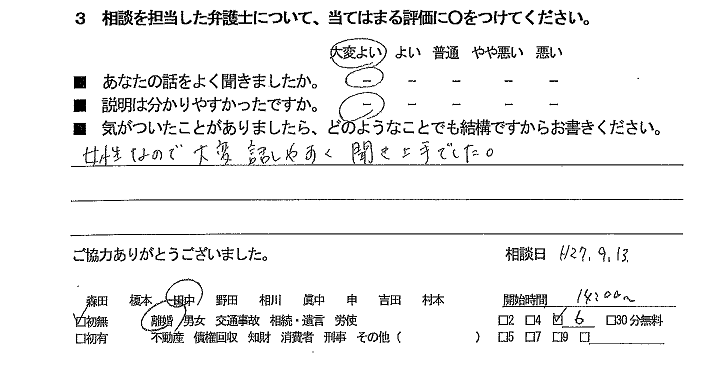 3 相談を担当した弁護士について、当てはまる評価に○をつけてください。
大変よい よい 普通 やや悪い 悪い
■ あなたの話をよく聞きましたか。 － － － － －
■ 説明は分かりやすかったですか。 － － － － －
■ 気がついたことがありましたら、どのようなことでも結構ですからお書きください。
女性なので大変話しやすく聞き上手でした。
ご協力ありがとうございました。 相談日 H27.9.13
森田 榎本 田中 野田 相川 眞中 申 吉田 村本 開始時間 14:00〜
☑初無 離婚 男女 交通事故 相続・遺言 労使 □2 □4 ☑ 6 □30分無料
□初有 不動産 債権回収 知財 消費者 刑事 その他 ( ) □5 □7 □9 □